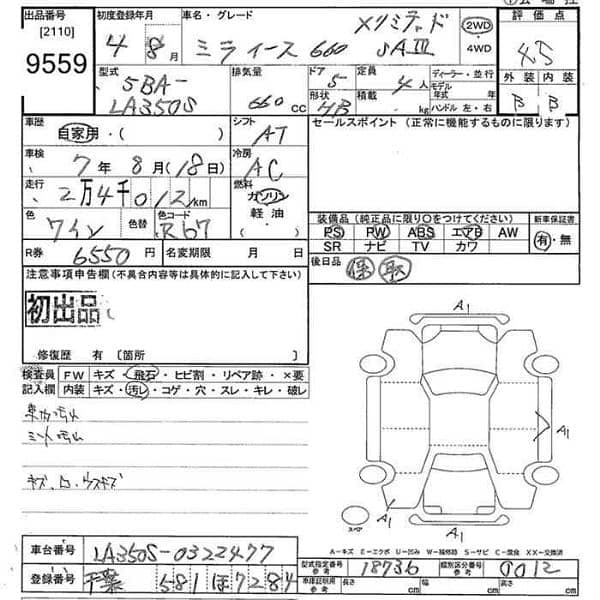 出品番号 初度登録年月 車名・グレード 評価点
[2110] 4年8月 ミライース 660 Xリミテッド SAⅢ 2WD・4WD 4.5
9559
型式 排気量 ドア 5 定員 4人 ディーラー・並行 外装 内装
5BA- モデル年式 年 B B
LA350S 660cc 形状 HB 積載 kg ハンドル 左・右
車歴 自家用・( ) シフト AT セールスポイント(正常に機能するものに限ります)
車検 7年8月(18日) 冷房 AC
走行 2万4千012km 燃料 ガソリン
色 ワイン 色替 色コード R67 軽油( )
装備品(純正品に限り○をつけてください) 新車保証書
R券 6550円 名変期限 月 日 PS PW ABS エアB AW 有・無
SR ナビ TV カワ
注意事項申告欄(不具合内容等は具体的に記入して下さい) 後日品 保 取
初出品
修復歴 有[箇所 ]
検査員 FW キズ・飛石・ヒビ割・リペア跡・×要
記入欄 内装 キズ・汚レ・コゲ・穴・スレ・キレ・破レ
A1
A1
A1
A1
スペア
A-キズ E-エクボ U-凹み W-補修跡 S-サビ C-腐食 XX-交換済
車台番号 LA350S-0322477
型式指定番号 参考 18736 類別区分番号 参考 0012
登録番号 千葉 581 ほ 7284 車庫証明用 参考 長さ cm 幅 cm 高さ cm